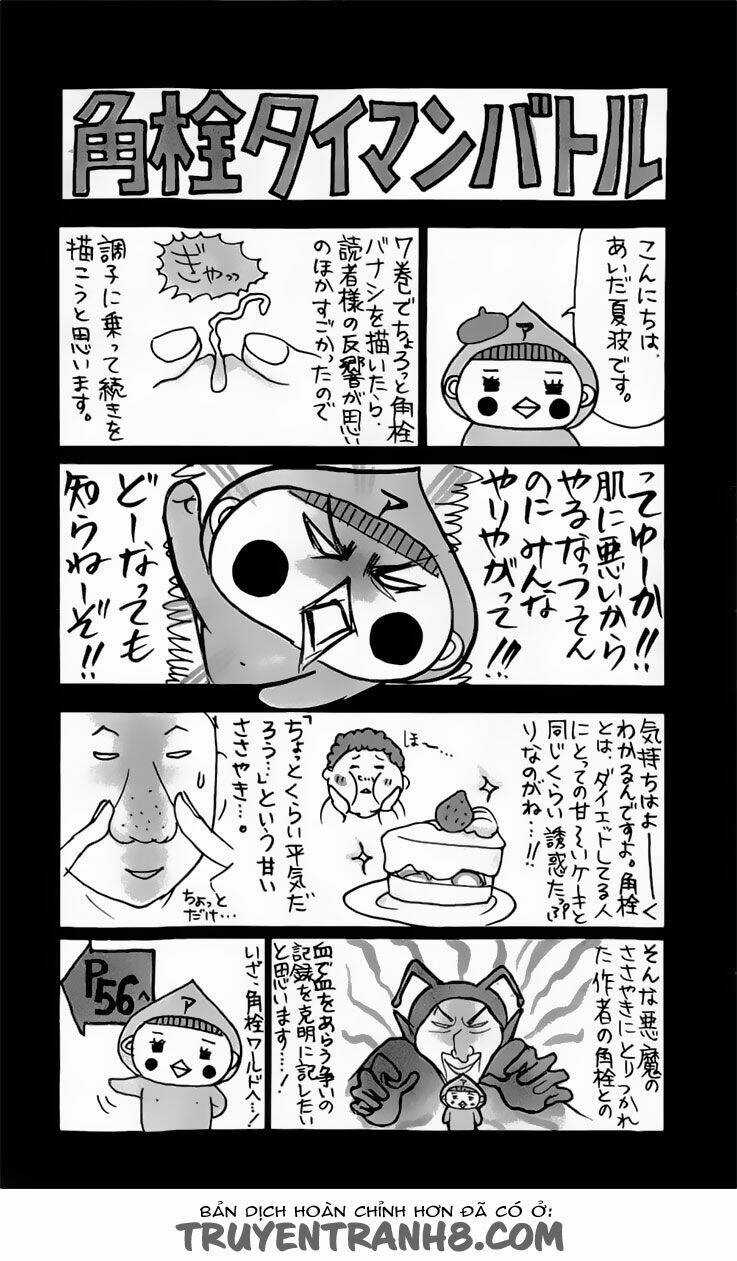 角栓タイマンバトル
こんにちは、
あいだ夏波です。
ア
7巻でちょろっと角栓
バナシを描いたら、
読者様の反響が思い
のほかすごかったので
ぎゃっっ
調子に乗って続きを
描こうと思います。
ってゆーか!!
肌に悪いから
やるなっつてん
のにみんな
やりやがって!!!
ア
どーなっても
知らねーぞ!!
気持ちはよーーく
わかるんですよ。角栓
とは、ダイエットしてる人
にとっての甘〜いケーキと
同じくらい誘惑たっぷ
りなのがね…!!
ほ〜…
「ちょっとくらい平気だ
ろう…」という甘い
ささやき…。
ちょっと
だけ…
そんな悪魔の
ささやきにとりつかれ
た作者の角栓との
血で血をあらう争いの
記録を克明に記したい
と思います…!
いざ、角栓ワールドへ…!
P56へ
ア
BẢN DỊCH HOÀN CHỈNH HƠN ĐÃ CÓ Ở:
TRUYENTRANH8.COM